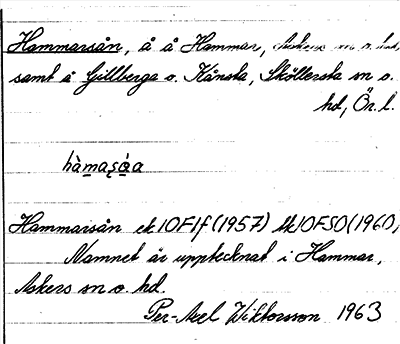 Hammarsån, å å Hammar, Askers sn o. hd,
samt å Gillberga o. Kånsta, Sköllersta sn o.
hd, Ör. l.
hàmaṣǻa
Hammarsån ek 10F1f (1957) tk 10FSO (1960)
Namnet är upptecknat i Hammar,
Askers sn o. hd.
Per-Axel Wiktorsson 1963